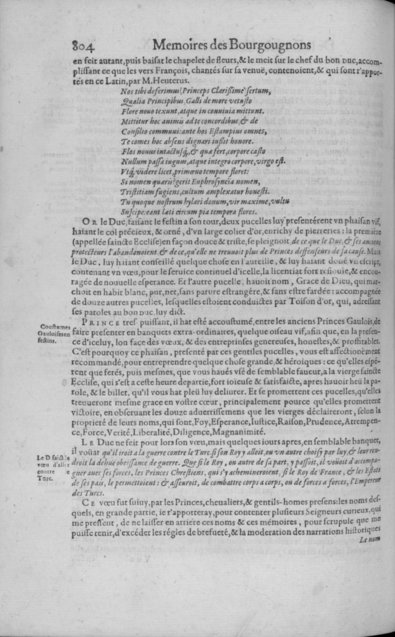 804 Memoires des Bourgougnons
en feit autant, puis baisat le chapelet de fleurs, & le meit sur le chef du bon Duc, accom-
plissant ce que les vers François, chantés sur sa venue, contenoient, & qui sont r'appor-
tés en ce Latin, par M. Heuterus.
Nos tibi deferimus (Princeps Clarissime) sertum,
Qualia Principibus, Galli de more vetusto
Flore nouo texunt, atque in conuiuia mittunt.
Mittitur hoc animis ad te concordibus, & de
Consilio communi: ante hos Estampius omnes,
Te comes hoc absens dignari iussit honore.
Flos monet intactusq́, & qua fert, corpore casto
Nullum passa iugum, atque integra corpore, virgo est.
Vtq́, videre licet, primæuo tempore floret:
Si nomen quæris? gerit Euphrosyncia nomen,
Tristitiam fugiens, cultum amplexatur honesti.
Tu quoque nostrum hylari donum, vir maxime, vultu
Suscipe, eant læti circum pia tempora flores.
OR le Duc, faisant le festin à son tour, deux pucelles luy presentérent vn phaisan vif,
haiant le col précieux, & orné, d'vn large colier d'or, enrichy de pierreries: la première
(appellée saincte Ecclise) en façon douce & triste, se pleignoit de ce que le Duc, & ses anciens
protecteurs l'abandonnoient & de ce, qu'elle ne trouuoit plus de Princes deffenseurs de sa cause. Mais
le Duc, luy haiant conseillé quelque chose en l'aureille, & luy haiant doné vn escript,
contenant vn vœu, pour le service continuel d'icelle, la licencia fort réiouïe, & encou-
ragée de nouuelle esperance. Et l'autre pucelle, hauoit nom, Grace de Dieu, qui mar-
choit en habit blanc, pur, net, sans parure estrangére, & sans estre fardée: accompagnée
de douze autres pucelles, lesquelles estoient conduictes par Toison d'or, qui, adressant
ses paroles au bon Duc, luy dict.
Coustumes
Gauloises en
festins.
PRINCE tres-puissant, il hat esté accoustumé, entre les anciens Princes Gaulois, de
faire presenter en banquets extra-ordinaires, quelque oiseau vif, afin que, en la presen-
ce d'iceluy, lon face des vœux, & des entreprinses genereuses, honestes, & profitables.
C'est pourquoy ce phaisan, presenté par ces gentiles pucelles, vous est affectionément
recommandé, pour entreprendre quelque chose grande, & héroïques: ce qu'elles espé-
rent que ferés, puis mesmes, que vous haués vsé de semblable faueur, à la vierge saincte
Ecclise, qui s'est à ceste heure departie, fort ioieuse & satisfaicte, apres hauoir heu la pa-
role, & le billet, qu'il vous hat pleu luy deliurer. Et se promettent ces pucelles, qu'elles
treuueront mesme grace en vostre cœur, principalement pource qu'elles promettent
victoire, en obseruant les douze aduertissemens que les vierges déclaireront, selon la
proprieté de leurs noms, qui sont, Foy, Esperance, Iustice, Raison, Prudence, Attrempen-
ce, Force, Verité, Liberalité, Diligence, Magnanimité.
Le D. faict le
vœu d'aller
contre le
Turc.
LE Duc ne feit pour lors son vœu, mais quelques iours apres, en semblable banquet,
il voüat qu'il iroit à la guerre contre le Turc, si son Roy y alloit, ou vn autre choisy par luy, & leur ren-
droit la deuë obeissance de guerre. Que si le Roy, ou autre de sa part, y passoit, il voüoit d'accompa-
gner auec ses forces, les Princes Chrestiens, qui s'y achemineroient, si le Roy de France, & les Estats
de ses païs, le permettoient: & asseuroit, de combattre corps à corps, ou de forces à forces, l'Empereur
des Turcs.
CE vœu fut suiuy, par les Princes, cheualiers, & gentils-homes presens: les noms des-
quels, en grande partie, ie t'apporteray, pour contenter plusieurs Seigneurs curieux, qui
me pressent, de ne laisser en arriere ces noms & ces mémoires, pour scrupule que me
puisse tenir, d'excéder les régles de brefueté, & la moderation des narrations historiques.
Le nom